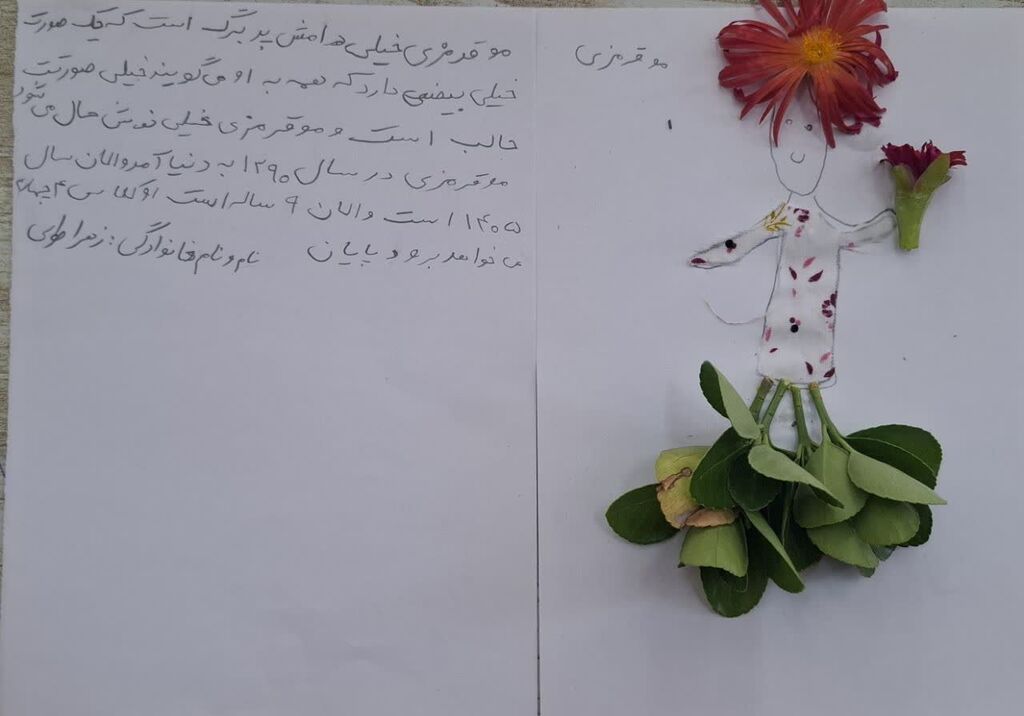 مو قرمزی خیلی دامنش پر برگ است که یک صورت
خیلی بیضی دارد که همه به او می‌گویند خیلی صورتت
جالب است و مو قرمزی خیلی خوش حال می‌شود
مو قرمزی در سال ۱۲۹۰ به دنیا آمد و الان سال
۱۴۰۵ است و الان ۹ ساله است او کلاس ۴ چهارم
می خواهد برود پایان نام و نام خانوادگی: زهرا
مو قرمزی